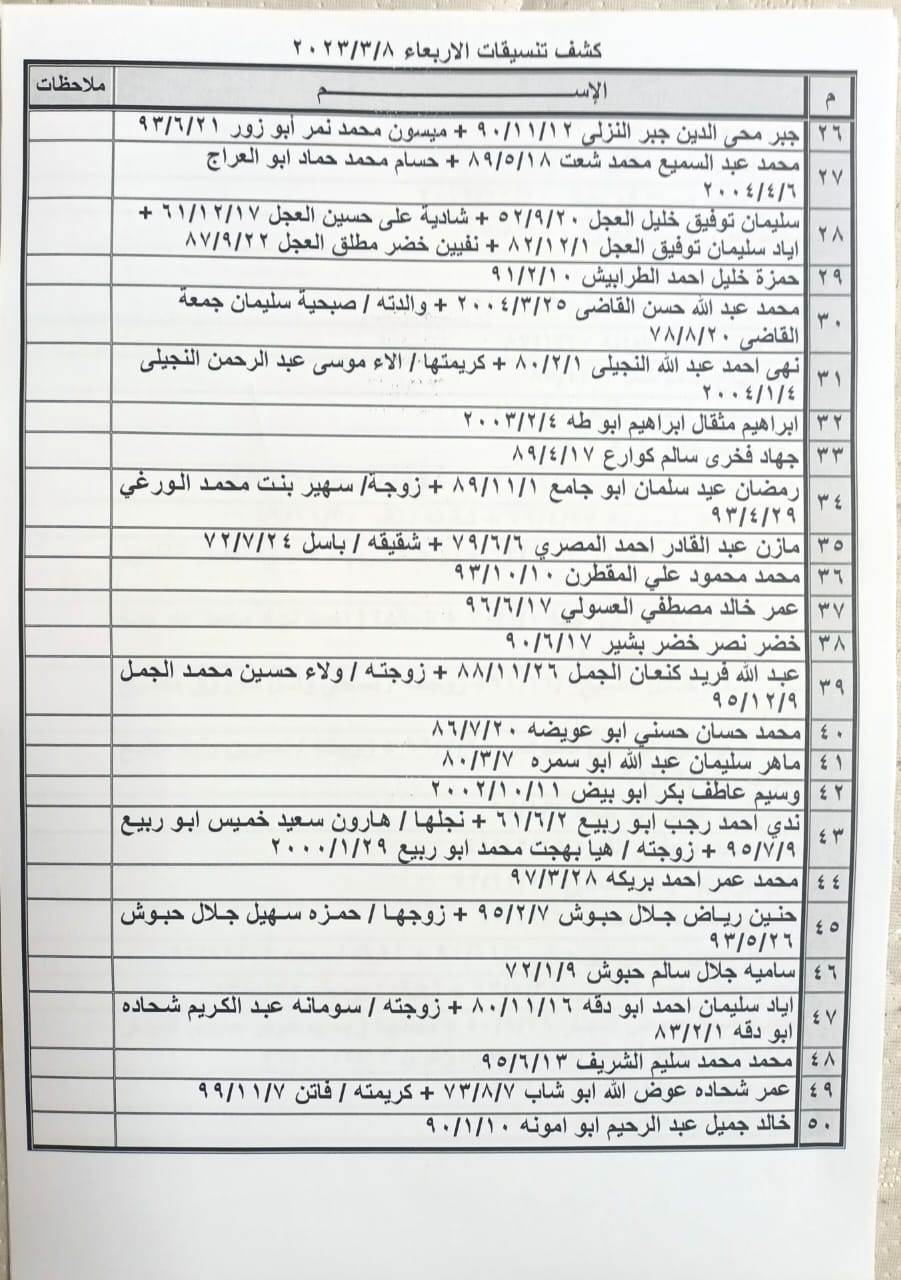 كشف تنسيقات الاربعاء ٢٠٢٣/٣/٨
م الإســـــــــــم ملاحظات
٢٦ جبر محى الدين جبر النزلى ٩٠/١١/١٢ + ميسون محمد نمر أبو زور ٩٣/٦/٢١
٢٧ محمد عبد السميع محمد شعت ٨٩/٥/١٨ + حسام محمد حماد ابو العراج
٢٠٠٤/٤/٦
٢٨ سليمان توفيق خليل العجل ٥٢/٩/٢٠ + شادية على حسين العجل ٦١/١٢/١٧ +
اياد سليمان توفيق العجل ٨٢/١٢/١ + نفيين خضر مطلق العجل ٨٧/٩/٢٢
٢٩ حمزة خليل احمد الطرابيش ٩١/٢/١٠
٣٠ محمد عبد الله حسن القاضى ٢٠٠٤/٣/٢٥ + والدته / صبحية سليمان جمعة
القاضى ٧٨/٨/٢٠
٣١ نهى احمد عبد الله النجيلى ٨٠/٢/١ + كريمتها / الاء موسى عبد الرحمن النجيلى
٢٠٠٤/١/٤
٣٢ ابراهيم مثقال ابراهيم ابو طه ٢٠٠٣/٢/٤
٣٣ جهاد فخرى سالم كوارع ٨٩/٤/١٧
٣٤ رمضان عيد سلمان ابو جامع ٨٩/١١/١ + زوجة/ سهير بنت محمد الورغي
٩٣/٤/٢٩
٣٥ مازن عبد القادر احمد المصري ٧٩/٦/٦ + شقيقه / باسل ٧٢/٧/٢٤
٣٦ محمد محمود علي المقطرن ٩٣/١٠/١٠
٣٧ عمر خالد مصطفي العسولي ٩٦/٦/١٧
٣٨ خضر نصر خضر بشير ٩٠/٦/١٧
٣٩ عبد الله فريد كنعان الجمل ٨٨/١١/٢٦ + زوجته / ولاء حسين محمد الجمل
٩٥/١٢/٩
٤٠ محمد حسان حسني ابو عويضه ٨٦/٧/٢٠
٤١ ماهر سليمان عبد الله ابو سمره ٨٠/٣/٧
٤٢ وسيم عاطف بكر ابو بيض ٢٠٠٢/١٠/١١
٤٣ ندي احمد رجب ابو ربيع ٦١/٦/٢ + نجلها / هارون سعيد خميس ابو ربيع
٩٥/٧/٩ + زوجته / هيا بهجت محمد ابو ربيع ٢٠٠٠/١/٢٩
٤٤ محمد عمر احمد بريكه ٩٧/٣/٢٨
٤٥ حنين رياض جلال حبوش ٩٥/٢/٧ + زوجها / حمزه سهيل جلال حبوش
٩٣/٥/٢٦
٤٦ ساميه جلال سالم حبوش ٧٢/١/٩
٤٧ اياد سليمان احمد ابو دقه ٨٠/١١/١٦ + زوجته / سومانه عبد الكريم شحاده
ابو دقه ٨٣/٢/١
٤٨ محمد محمد سليم الشريف ٩٥/٦/١٣
٤٩ عمر شحاده عوض الله ابو شاب ٧٣/٨/٧ + كريمته / فاتن ٩٩/١١/٧
٥٠ خالد جميل عبد الرحيم ابو امونه ٩٠/١/١٠